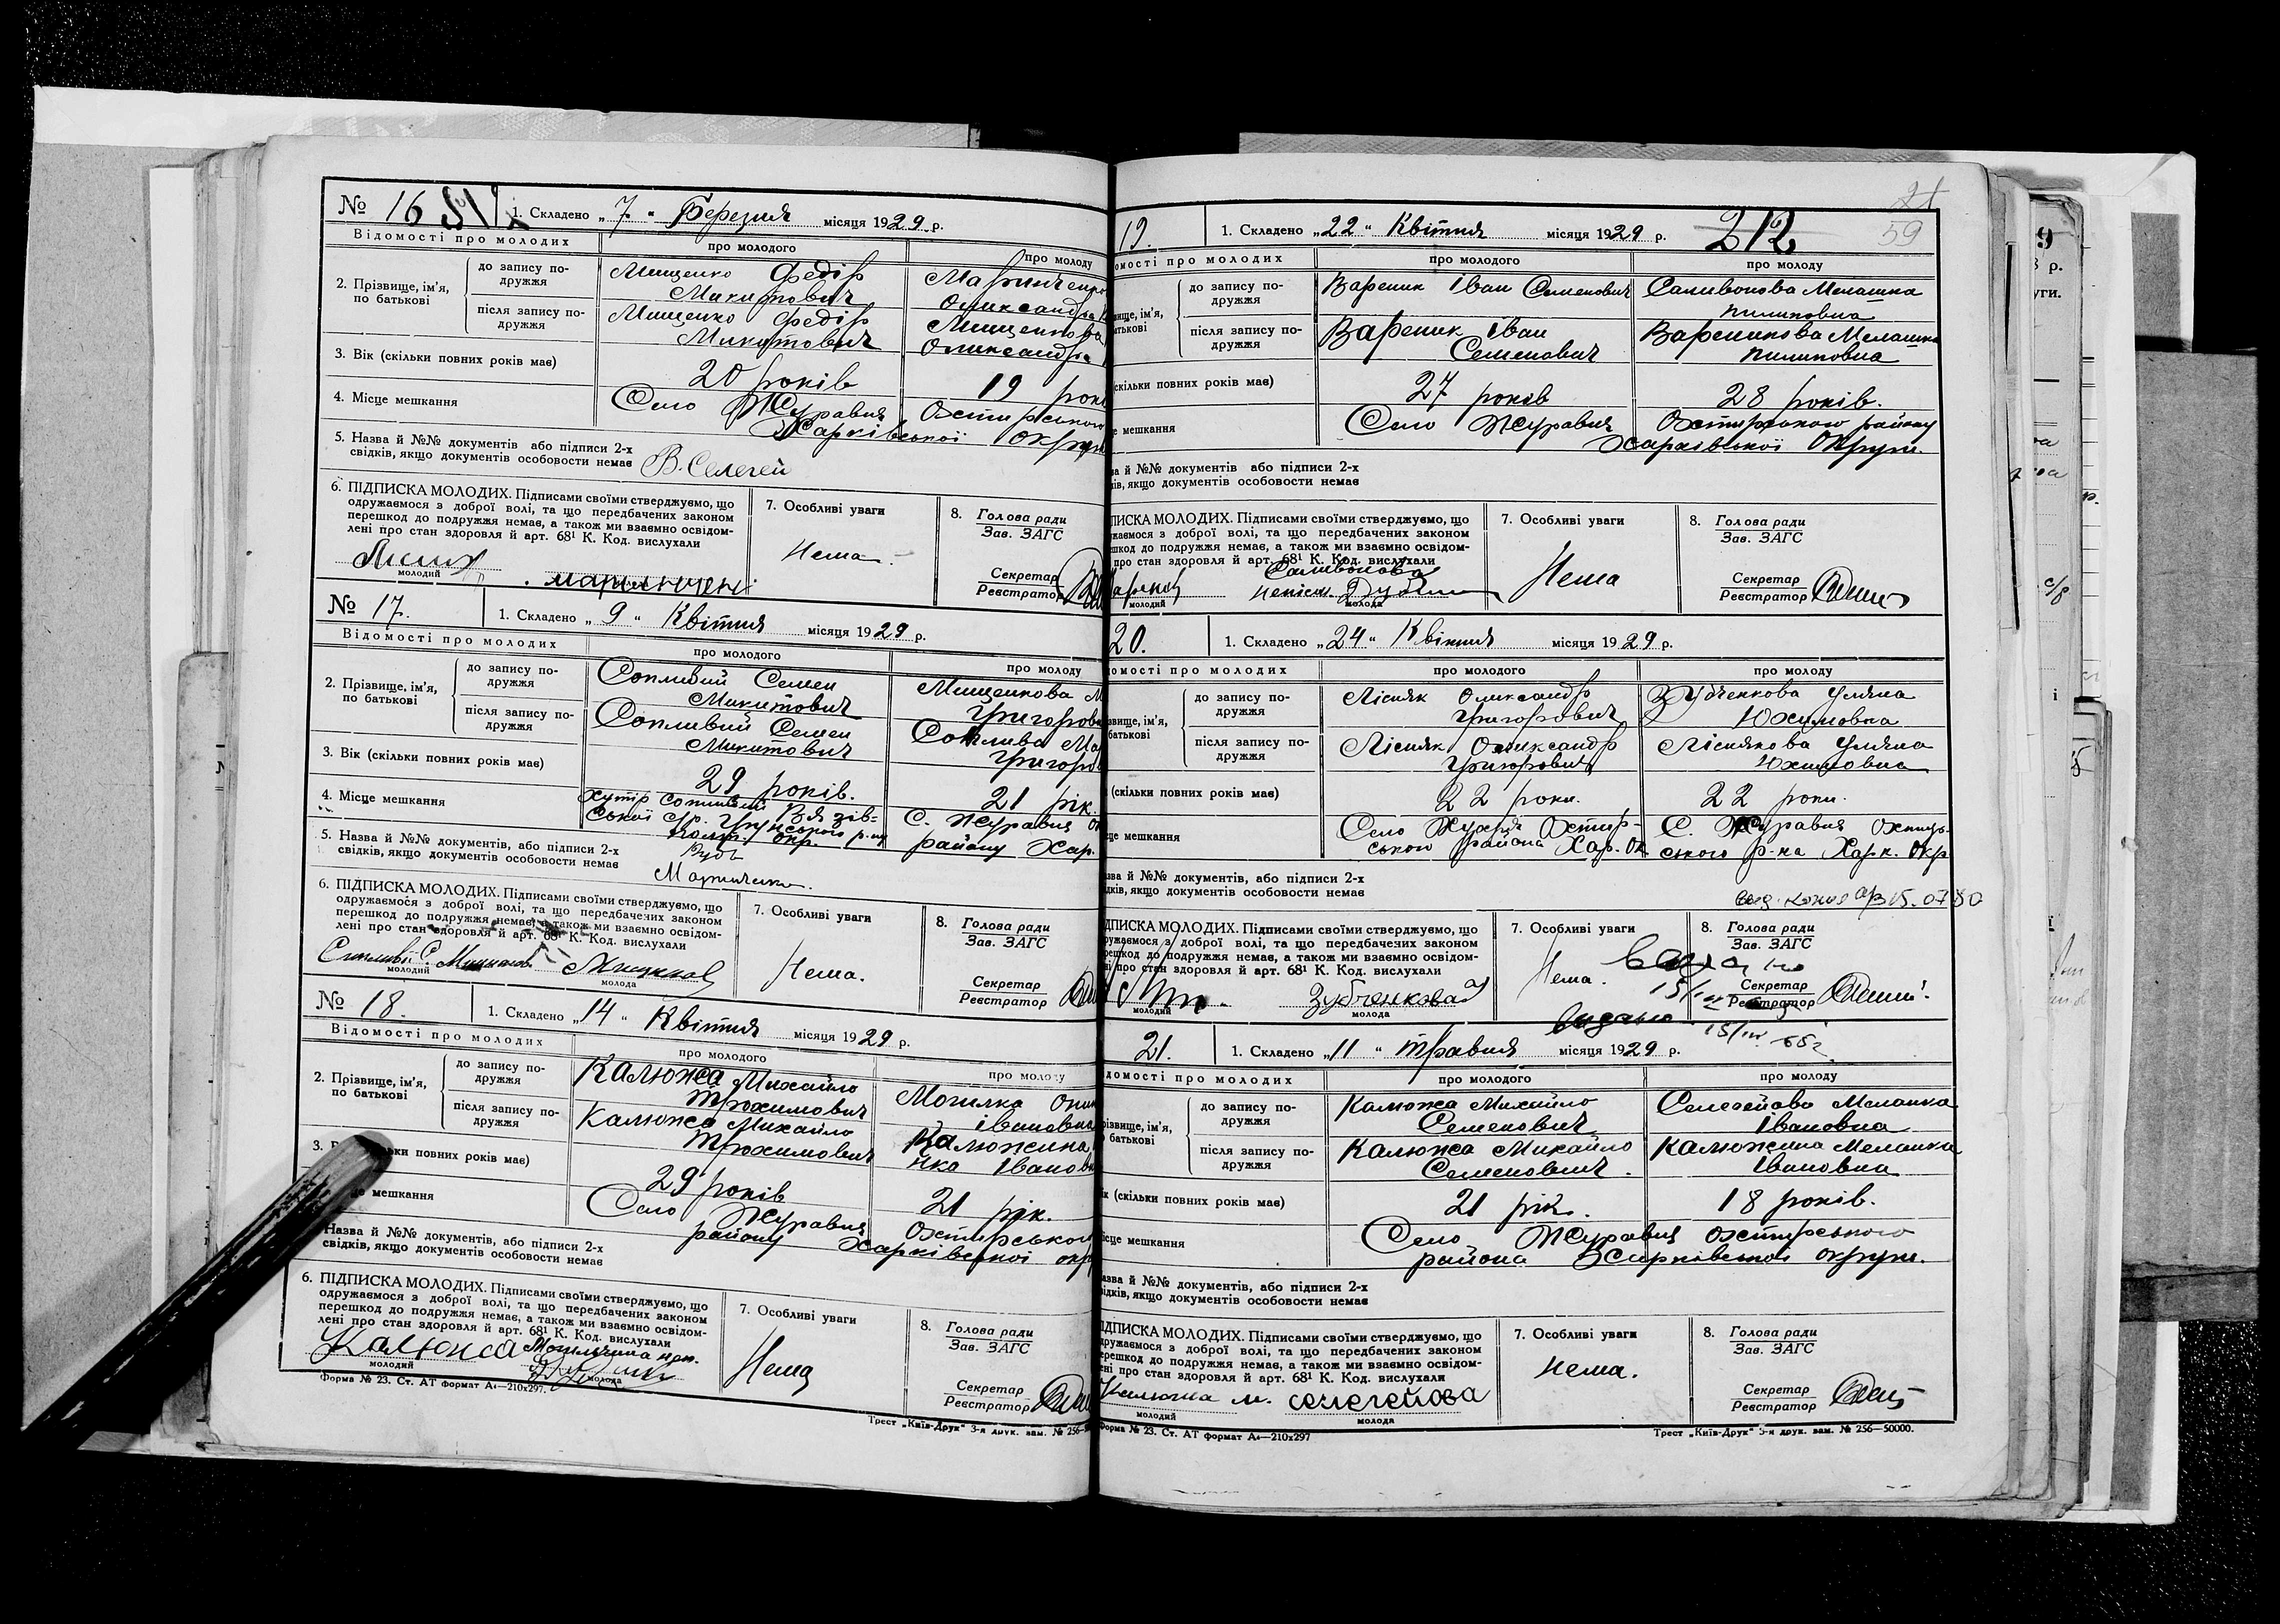 № 16 1. Складено „ 7 “ Березня місяця 1929 р.
Відомості про молодих про молодого про молоду
2. Прізвище, ім'я, по батькові
до запису подружжя Мищенко Федір
Микитович
Олександра
після запису подружжя Мищенко Федір
Микитович
Мищенкова
Олександра
3. Вік (скільки повних років має) 20 років 19 рок
4. Місце мешкання Село Журавня Охтирського
Харківської округ
5. Назва й №№ документів або підписи 2-х
свідків, якщо документів особовости немає В. Селегей
6. ПІДПИСКА МОЛОДИХ. Підписами своїми стверджуємо, що
одружаємося з доброї волі, та що передбачених законом
перешкод до подружжя немає, а також ми взаємно освідом-
лені про стан здоровля й арт. 68¹ К. Код. вислухали
молодий
7. Особливі уваги
Нема
8. Голова ради
Зав. ЗАГС
Секретар
Реєстратор
№ 17. 1. Складено „ 9 “ Квітня місяця 1929 р.
Відомості про молодих про молодого про молоду
2. Прізвище, ім'я, по батькові
до запису по-
дружжя Сопливий Семен
Микитович
Мищенкова М
Григоровн
після запису по-
дружжя Сопливий Семен
Микитович
Соплива Ма
Григоров
3. Вік (скільки повних років має) 29 років. 21 рік.
4. Місце мешкання Хутір Сопливий Вязів-
ської с/р. Грунського р-ну
окр.
С. Журавня Ох
району Хар.
5. Назва й №№ документів, або підписи 2-х
свідків, якщо документів особовости немає
6. ПІДПИСКА МОЛОДИХ. Підписами своїми стверджуємо, що
одружаємося з доброї волі, та що передбачених законом
перешкод до подружжя немає, а також ми взаємно освідом-
лені про стан здоровля й арт. 68¹ К. Код. вислухали
молодий молода
7. Особливі уваги
Нема.
8. Голова ради
Зав. ЗАГС
Секретар
Реєстратор
№ 18. 1. Складено „ 14 “ Квітня місяця 1929 р.
Відомості про молодих про молодого про молоду
2. Прізвище, ім'я,
по батькові
до запису по-
дружжя Калюжа Михайло
Трохимович
Могилка
Івановна
після запису по-
дружжя Калюжа Михайло
Трохимович
Калюжина
Івановн
3. повних років має) 29 років 21 рік.
мешкання Село Журавня Охтирського
району Харківської окр
Назва й №№ документів, або підписи 2-х
свідків, якщо документів особовости немає
6. ПІДПИСКА МОЛОДИХ. Підписами своїми стверджуємо, що
одружаємося з доброї волі, та що передбачених законом
перешкод до подружжя немає, а також ми взаємно освідом-
лені про стан здоровля й арт. 68¹ К. Код. вислухали
Калюжа
молодий молода
7. Особливі уваги
Нема
8. Голова ради
Зав. ЗАГС
Секретар
Реєстратор
Форма № 23. Ст. АТ формат А4—210x297.
Трест „Київ-Друк“ 3-я друк. зам. № 256
21
59
212
19. 1. Складено „ 22 “ Квітня місяця 1929 р.
омості про молодих про молодого про молоду
вище, ім'я,
атькові
до запису по-
дружжя Вареник Іван Семенович
Саливонова Мелашка
Пилиповна
після запису по-
дружжя Вареник Іван
Семенович
Вареникова Мелашка
Пилиповна
скільки повних років має) 27 років 28 років.
е мешкання Село Журавня Охтирського району
Харківської Округи.
ва й №№ документів або підписи 2-х
ків, якщо документів особовости немає
ПИСКА МОЛОДИХ. Підписами своїми стверджуємо, що
жаємося з доброї волі, та що передбачених законом
шкод до подружжя немає, а також ми взаємно освідом-
про стан здоровля й арт. 68¹ К. Код. вислухали
Саливонова
молодий молода
7. Особливі уваги
Нема
8. Голова ради
Зав. ЗАГС
Секретар
Реєстратор
20. 1. Складено „ 24 “ Квітня місяця 1929 р.
омості про молодих про молодого про молоду
звище, ім'я,
батькові
до запису по-
дружжя Лісняк Олександр
Григорович
Зубченкова Уляна
Юхимовна
після запису по-
дружжя Лісняк Олександр
Григорович
Ліснякова Уляна
Юхимовна
(скільки повних років має) 22 роки. 22 роки.
це мешкання Село Журавня Охтир-
ського района Хар. Ок.
С. Журавня Охтирь-
ського р-на Харк. Окр
зва й №№ документів, або підписи 2-х
дків, якщо документів особовости немає
ДПИСКА МОЛОДИХ. Підписами своїми стверджуємо, що
ружаємося з доброї волі, та що передбачених законом
решкод до подружжя немає, а також ми взаємно освідом-
і про стан здоровля й арт. 68¹ К. Код. вислухали
Зубченкова
молодий молода
7. Особливі уваги
Нема.
видано
8. Голова ради
Зав. ЗАГС
Секретар
Реєстратор
21. 1. Складено „ 11 “ травня місяця 1929 р.
домості про молодих про молодого про молоду
ізвище, ім'я,
батькові
до запису по-
дружжя Калюжа Михайло
Семенович
Селегейова Меланка
Івановна
після запису по-
дружжя Калюжа Михайло
Семенович.
Калюжина Меланка
Івановна
ік (скільки повних років має) 21 рік. 18 років.
ісце мешкання Село Журавня Охтирського
района Харківської округи.
азва й №№ документів, або підписи 2-х
ідків, якщо документів особовости немає
ІДПИСКА МОЛОДИХ. Підписами своїми стверджуємо, що
дружаємося з доброї волі, та що передбачених законом
ерешкод до подружжя немає, а також ми взаємно освідом-
ені про стан здоровля й арт. 68¹ К. Код. вислухали
Калюжа м. селегейова
молодий молода
7. Особливі уваги
Нема.
8. Голова ради
Зав. ЗАГС
Секретар
Реєстратор
Форма № 23. Ст. АТ формат А4—210x297
Трест „Київ-Друк“ 5-я друк. зам. № 256—50000.